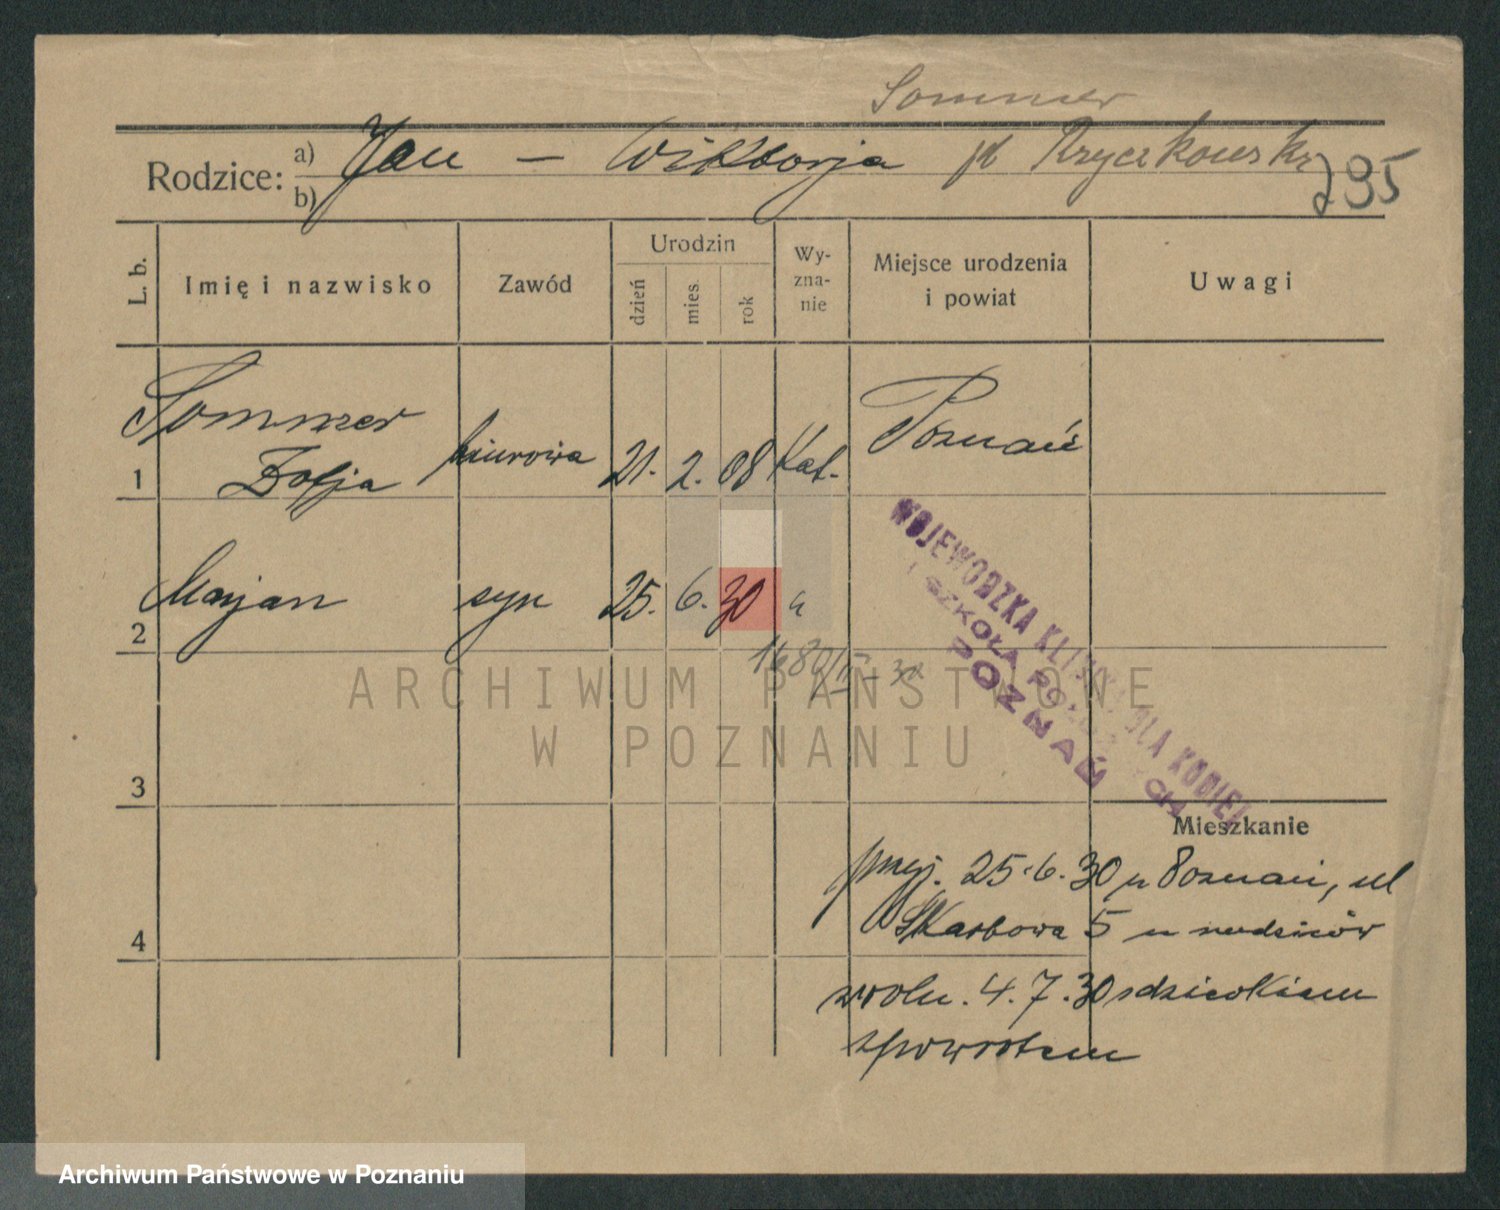 Sommer
Rodzice: a) Jan – Wiktorja
b)
295
L. b.
Imię i nazwisko
Zawód
Urodzin
dzień
mies.
rok
Wy-
zna-
nie
Miejsce urodzenia
i powiat
Uwagi
1 Sommer
Zofja biurowa 21. 2. 08 Kat. Poznań
2 Marjan syn 25. 6. 30 "
1680/III - 30
WOJEWÓDZKA KLINIKA DLA KOBIET
I SZKOŁA POŁOŻNYCH
POZNAŃ
3
4
Mieszkanie
przyj. 25.6.30 z Poznań, ul
Skarbowa 5 u rodziców
zwoln. 4.7.30 z dzieckiem
zpowrotem
ARCHIWUM PAŃSTWOWE
W POZNANIU
Archiwum Państwowe w Poznaniu